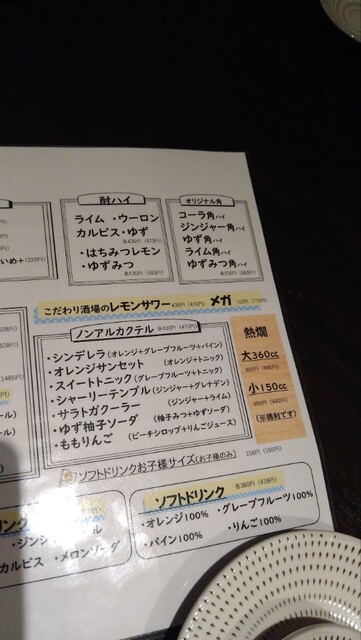 酎ハイ
ライム ・ウーロン
カルピス・ゆず
各430円(473円)
・はちみつレモン
・ゆずみつ
オリジナル角
コーラ角ハイ
ジンジャー角ハイ
ゆず角ハイ
ライム角ハイ
ゆずみつ角ハイ
いめ+(220円)
こだわり酒場のレモンサワー 430円(473円) メガ
ノンアルカクテル 各430円(473円)
・シンデレラ(オレンジ+グレープフルーツ+パイン)
・オレンジサンセット (オレンジ+トニック)
・スイートトニック(グレープフルーツ+トニック)
・シャーリーテンプル(ジンジャー+グレナデン)
・サラトガクーラー (ジンジャー+ライム)
・ゆず柚子ソーダ (柚子みつ+ゆずソーダ)
・ももりんご (ピーチシロップ+りんごジュース)
熱燗
大360cc
小150cc
(※徳利です)
ソフトドリンクお子様サイズ(お子様のみ) 150円(165円)
リンク
・ジンジ
カルピス ・メロンソーダ
ソフトドリンク 各380円(418円)
・オレンジ100% ・グレープフルーツ100%
・パイン100% ・りんご100%